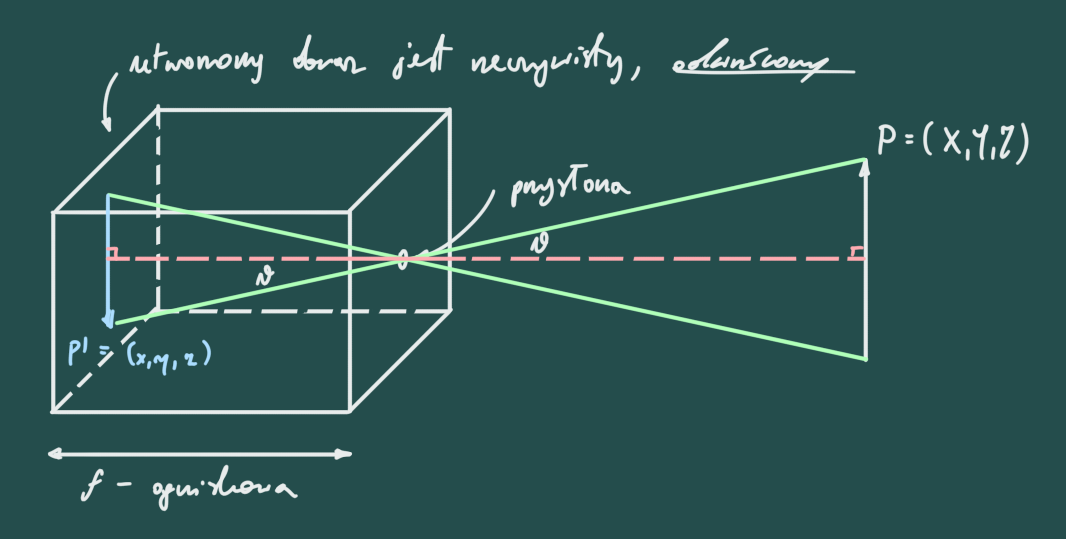 utworzony obraz jest rzeczywisty, odwrócony
P = (X, Y, Z)
przysłona
ϑ
ϑ
P' = (x, y, z)
f - ogniskowa